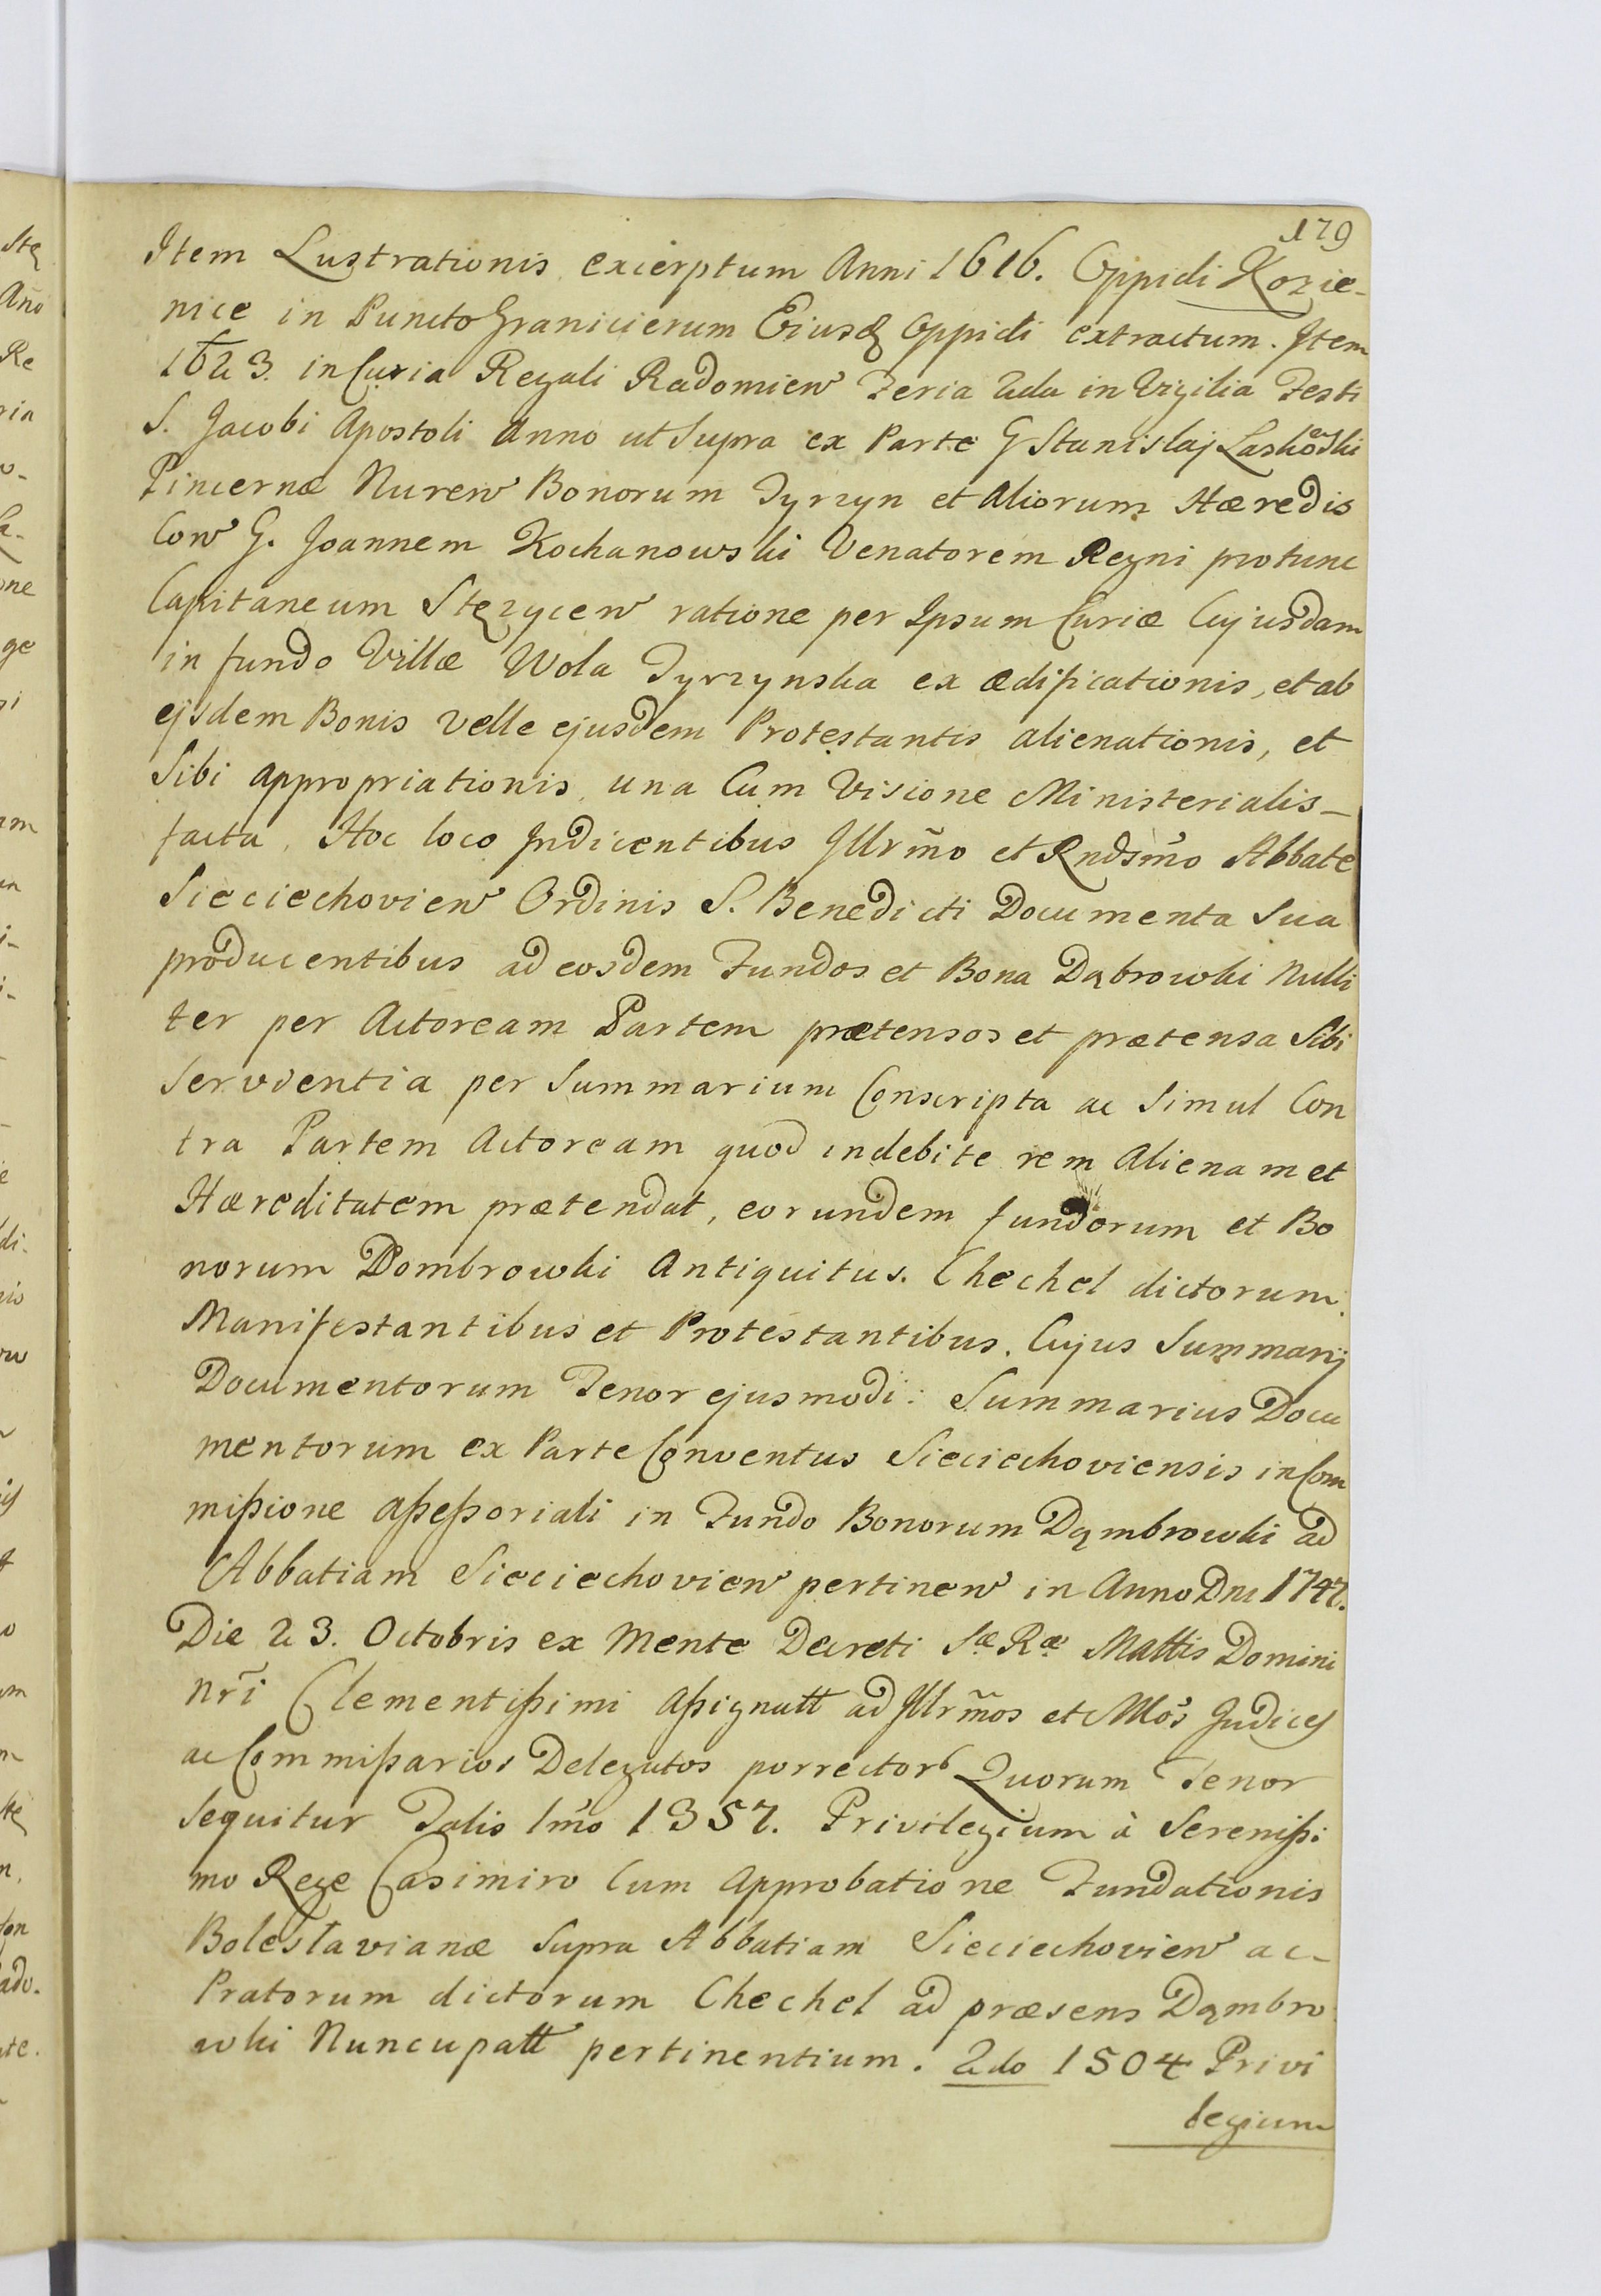 179
Item Lustrationis excerptum Anni 1616. Oppidi Kozie-
nice in Puncto Granicierum Eiusd Oppidi extractum. Item
1623. in Curia Regali Radomien Feria 2da in Vigilia Festi
S. Jacobi Apostoli Anno ut Supra ex Parte G Stanislaj Laskowski
Pincernæ Nuren Bonorum Tyrzyn et Aliorum Hæredis
Con G. Joannem Kochanowski Venatorem Regni protunc
Capitaneum Stęzycen ratione per Ipsum Curiæ Cujusdam
in fundo Villæ Wola Tyrzynska ex ædificationis, et ab
ejsdem Bonis velle ejusdem Protestantis alienationis, et
Sibi appropriationis una Cum Visione Ministerialis-
facta. Hoc loco Indicentibus Illrmo et Rndsmo Abbate
Sieciechovien Ordinis S. Benedicti Documenta Sua
producentibus ad eosdem Fundos et Bona Dąbrowki Nulli
ter per Actoream Partem prætensos et prætensa Sibi
Servientia per Summarium Conscripta ac Simul Con
tra Partem Actoream quod indebite rem Alienam et
Hæreditatem prætendat, eorundem fundorum et Bo
norum Dombrowki Antiquitus. Chechel dictorum.
Manifestantibus et Protestantibus. Cujus Summarij
Documentorum Tenor ejusmodi: Summarius Docu
mentorum ex Parte Conventus Sieciechoviensis in Com
mißione Aßeßoriali in Fundo Bonorum Dąmbrowki ad
Abbatiam Sieciechovien pertinen in Anno Dni 1747.
Die 23. Octobris ex Mente Decreti Sæ Ræ Mattis Domini
nri Clementißimi Aßignatt ad Illrmos et Mos Judices
ac Commißarios Delegatos porrector Quorum Tenor
Sequitur Talis 1mo 1357. Privilegium à Sereniß:
mo Rege Casimiro Cum Approbatione Fundationis
Boleslavianæ supra Abbatiam Sieciechovien ac-
Pratorum dictorum Chechel ad præsens Dąmbro
wki Nuncupatt pertinentium. 2do 1504 Privi
legium